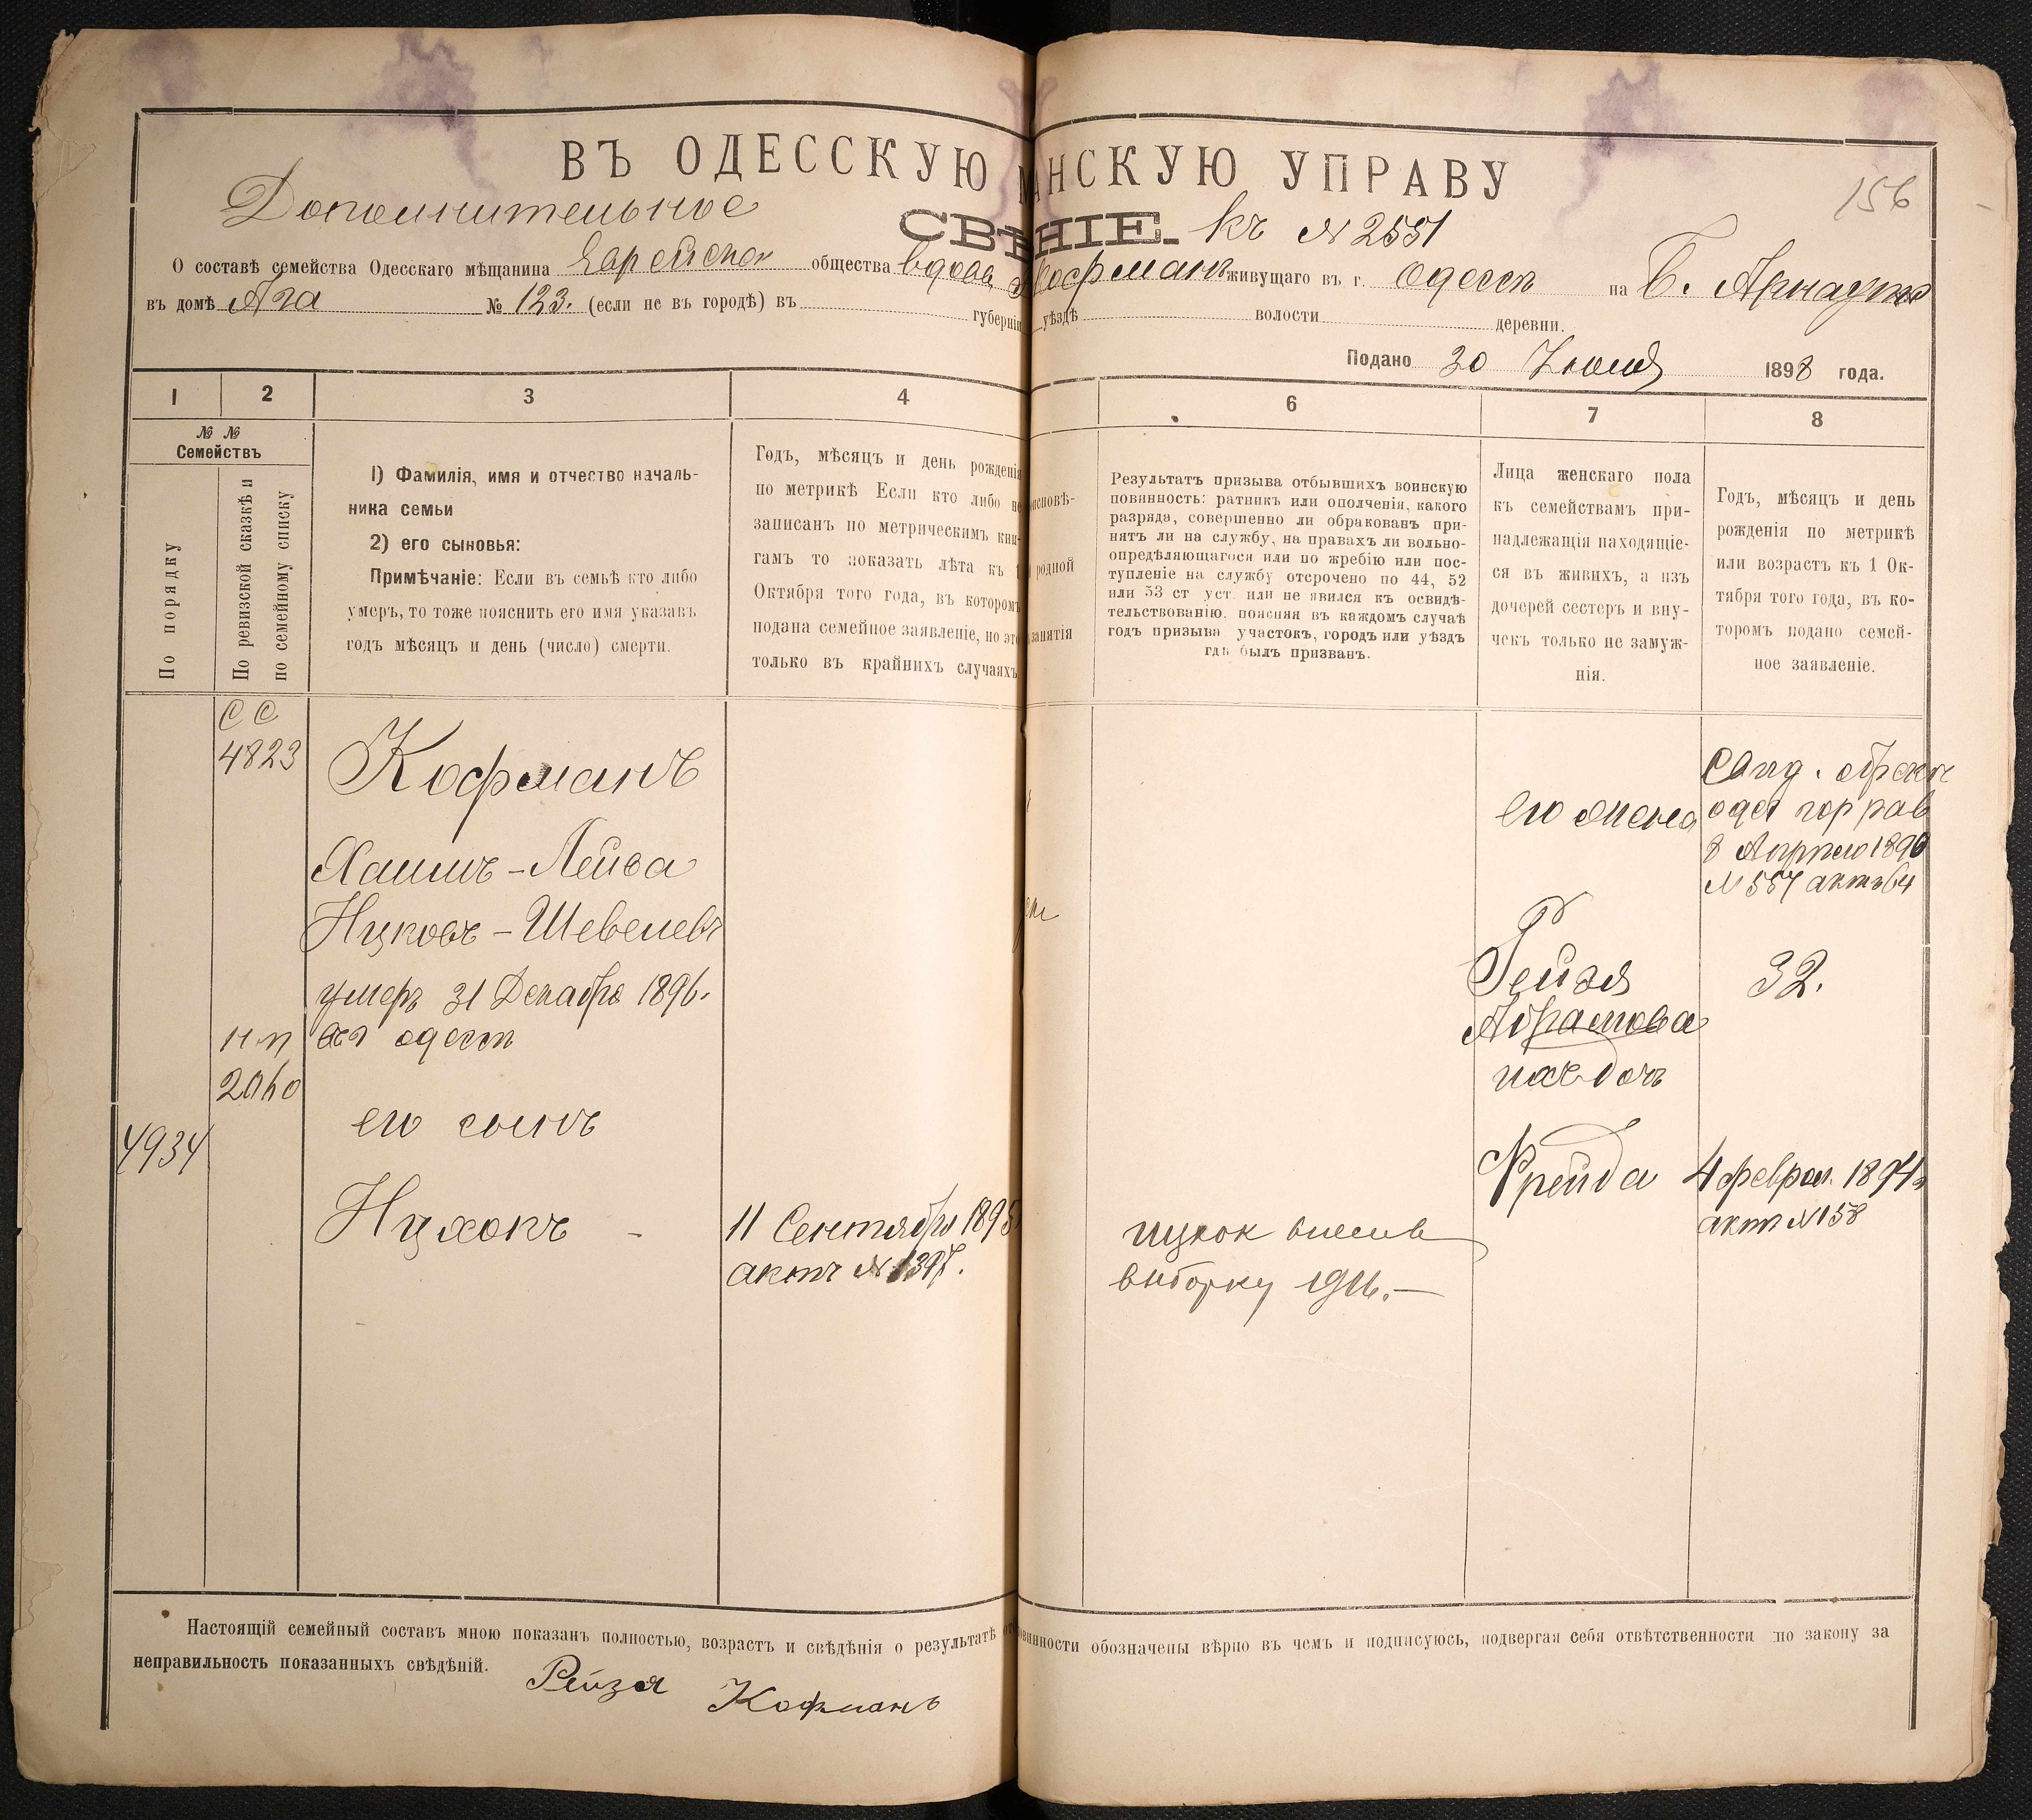 ВЪ ОДЕССКУЮ М АНСКУЮ УПРАВУ
156
Дополнительное
СВѢ НІЕ. къ № 2551
О составѣ семейства Одесскаго мѣщанина Еврейска общества вдова Кофманъ живущаго въ г. Одессѣ на Б. Арнаутс
въ домѣ Ага № 123. (если не въ городѣ) въ губерніи уѣздѣ волости деревни.
Подано 30 1898 года.
1 2 3 4 6 7 8
№ №
Семействъ
По порядку
По ревизской сказкѣ и
по семейному списку
1) Фамилія, имя и отчество началь-
ника семьи
2) его сыновья:
Примѣчаніе: Если въ семьѣ кто либо
умеръ, то тоже пояснить его имя указавъ
годъ мѣсяцъ и день (число) смерти.
Годъ, мѣсяцъ и день рожденія
по метрикѣ Если кто либо не
записанъ по метрическимъ кни-
гамъ то показать лѣта къ 1
Октября того года, въ которомъ
подана семейное заявленіе, но это
только въ крайнихъ случаяхъ
исповѣ-
родной
занятія
Результатъ призыва отбывшихъ воинскую
повинность: ратникъ или ополченія, какого
разряда, совершенно ли обракованъ при-
нятъ ли на службу, на правахъ ли вольно-
опредѣляющагося или по жребію или пос-
тупленіе на службу отсрочено по 44, 52
или 53 ст уст. или не явился къ освидѣ-
тельствованію. поясняя въ каждомъ случаѣ
годъ призыва участокъ, городъ или уѣздъ
гдѣ былъ призванъ.
Лица женскаго пола
къ семействамъ при-
надлежащія находящіе-
ся въ живихъ, а изъ
дочерей сестеръ и вну-
чекъ только не замуж-
нія.
Годъ, мѣсяцъ и день
рожденія по метрикѣ
или возрастъ къ 1 Ок-
тября того года, въ ко-
торомъ подано семей-
ное заявленіе.
СС
4823
Кофманъ
Хаимъ-Лейва
Ицковъ-Шевелевъ
умеръ 31 Декабря 1896.
въ одессѣ
нп
2060
его сынъ
4934
Ицхокъ -
11 Сентября 1895
актъ № 1397.
ицкок внесен в
выборку 1916.-
его жена
одес гор рав
8 Апрѣля 1890
№ 557 актъ 64
Рейзя
Абрамова
32.
ихъ дочъ
Фрейда
4 феврал. 1894
акт № 158
Настоящій семейный составъ мною показанъ полностью, возрастъ и свѣдѣнія о результатѣ от винности обозначены вѣрно въ чемъ и подписуюсь, подвергая себя отвѣтственности по закону за
неправильность показанныхъ свѣдѣній.
Рейзя Кофманъ